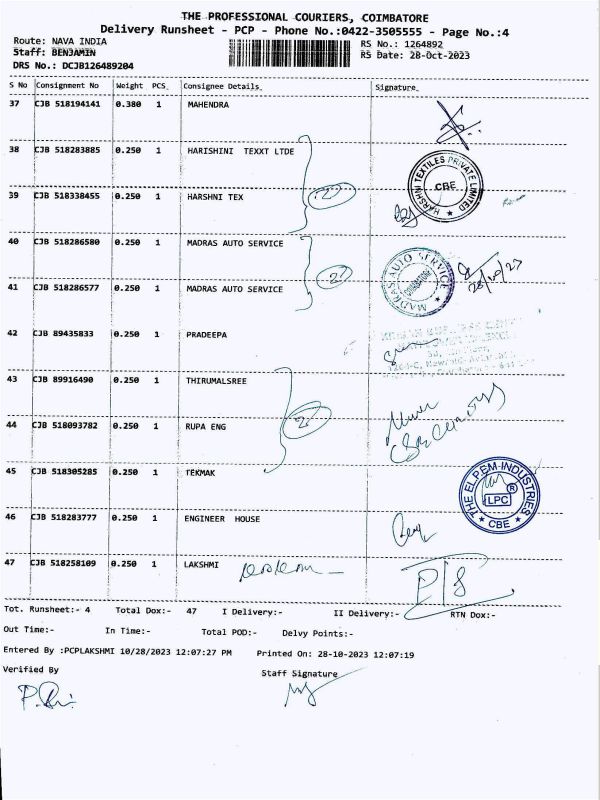 THE PROFESSIONAL COURIERS, COIMBATORE
Delivery Runsheet - PCP - Phone No.:0422-3505555 - Page No.:4
Route: NAVA INDIA RS No.: 1264892
Staff: BENJAMIN RS Date: 28-Oct-2023
DRS No.: DCJB126489204
S No Consignment No Weight PCS Consignee Details Signature
37 CJB 518194141 0.380 1 MAHENDRA
38 CJB 518283885 0.250 1 HARISHINI TEXXT LTDE
HARSHNI TEXTILES PRIVATE LIMITED
CBE
39 CJB 518338455 0.250 1 HARSHNI TEX
2
40 CJB 518286580 0.250 1 MADRAS AUTO SERVICE
MADRAS AUTO SERVICE
COIMBATORE
28/10/23
2
41 CJB 518286577 0.250 1 MADRAS AUTO SERVICE
42 CJB 89435833 0.250 1 PRADEEPA
43 CJB 89916490 0.250 1 THIRUMALSREE
2
44 CJB 518093782 0.250 1 RUPA ENG
45 CJB 518305285 0.250 1 TEKMAK
THE ELPEM-INDUSTRIES
LPC R
CBE
46 CJB 518283777 0.250 1 ENGINEER HOUSE
47 CJB 518258109 0.250 1 LAKSHMI
P/S
Tot. Runsheet:- 4 Total Dox:- 47 I Delivery:- II Delivery:- RTN Dox:-
Out Time:- In Time:- Total POD:- Delvy Points:-
Entered By :PCPLAKSHMI 10/28/2023 12:07:27 PM Printed On: 28-10-2023 12:07:19
Verified By Staff Signature